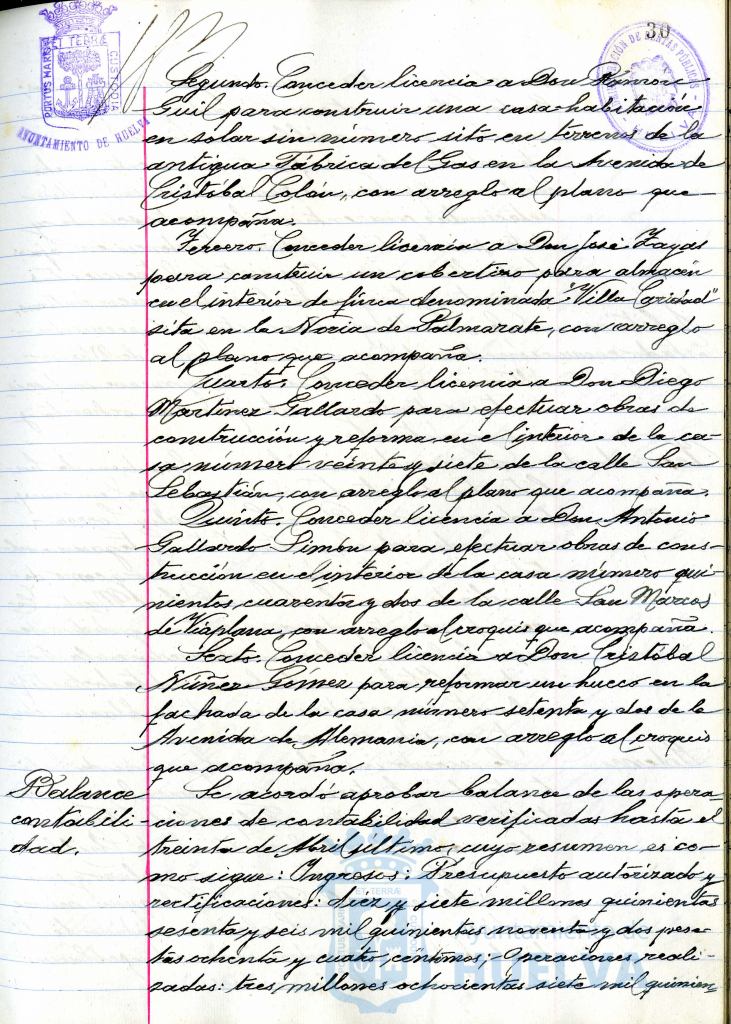 30
PORTUS MARIS ET TERRÆ CUSTODIA
AYUNTAMIENTO DE HUELVA
Segundo. Conceder licencia a Don Ramon
Guil para construir una casa-habitación
en solar sin número sito en terrenos de la
antigua Fábrica del Gas en la Avenida de
Cristobal Colón, con arreglo al plano que
acompaña.
Tercero. Conceder licencia a Don José Zayas
para construir un cobertizo para almacén
en el interior de finca denominada "Villa Caridad"
sita en la Noria de Palmarate, con arreglo
al plano que acompaña.
Cuarto. Conceder licencia a Don Diego
Martinez Gallardo para efectuar obras de
construcción y reforma en el interior de la ca-
sa número veinte y siete de la calle San
Sebastián, con arreglo al plano que acompaña.
Quinto. Conceder licencia a Don Antonio
Gallardo Simón para efectuar obras de cons-
trucción en el interior de la casa número qui-
nientos cuarenta y dos de la calle San Marcos
de Viaplana, con arreglo al croquis que acompaña.
Sexto. Conceder licencia a Don Cristóbal
Núñez Gómez para reformar un hueco en la
fachada de la casa número setenta y dos de la
Avenida de Alemania, con arreglo al croquis
que acompaña.
Balance
contabili-
dad.
Se acordó aprobar balance de las opera-
ciones de contabilidad verificadas hasta el
treinta de Abril último, cuyo resumen es co-
mo sigue: Ingresos: Presupuesto autorizado y
rectificaciones: diez y siete millones quinientas
sesenta y seis mil quinientas noventa y dos pese-
tas ochenta y cuatro céntimos; Operaciones reali-
zadas: tres millones ochocientas siete mil quinien-
Ayuntamiento de
HUELVA